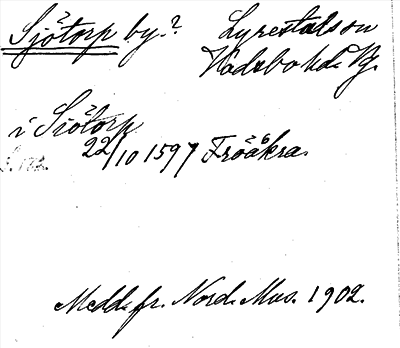 Sjötorp by.?
Lyrestads sn
Vadsbo hd. Vg.
i Siötorp
22/10 1597 Fröåkra.
Medd. fr. Nord. Mus. 1902.